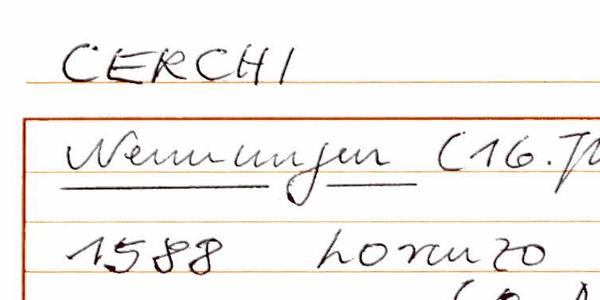 CERCHI
Nennungen (16. J
1588 Lorenzo